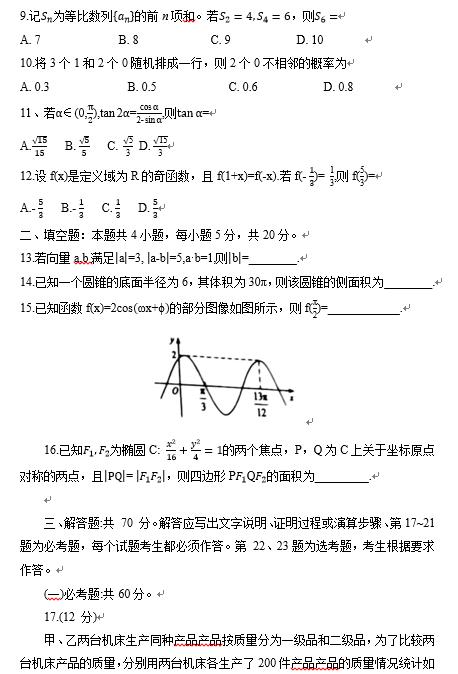 9.记Sₙ为等比数列{aₙ}的前 n 项和。若S₂ = 4, S₄ = 6，则S₆ =
A. 7 B. 8 C. 9 D. 10
10.将 3 个 1 和 2 个 0 随机排成一行，则 2 个 0 不相邻的概率为
A. 0.3 B. 0.5 C. 0.6 D. 0.8
11、若α∈ (0,π/2),tan 2α=cos α/2-sin α,则tan α=
A.√15/15 B. √5/5 C. √5/3 D. √15/3
12.设 f(x)是定义域为 R 的奇函数，且 f(1+x)=f(-x).若 f(- 1/3)= 1/3,则 f(5/3)=
A.- 5/3 B.- 1/3 C. 1/3 D. 5/3
二、填空题：本题共 4 小题，每小题 5 分，共 20 分。
13.若向量 a,b.满足|a|=3, |a-b|=5,a·b=1,则|b|=________.
14.已知一个圆锥的底面半径为 6，其体积为 30π，则该圆锥的侧面积为________.
15.已知函数 f(x)=2cos(ωx+ϕ)的部分图像如图所示，则 f(π/2)=____________.
y
2
O
π/3
13π/12
x
16.已知F₁, F₂为椭圆 C: x²/16 + y²/4 = 1的两个焦点，P，Q 为 C 上关于坐标原点
对称的两点，且|PQ|= |F₁F₂|，则四边形 PF₁QF₂的面积为_________.
三、解答题:共 70 分。解答应写出文字说明、证明过程或演算步骤、第 17~21
题为必考题，每个试题考生都必须作答。第 22、23 题为选考题，考生根据要求
作答。
(一)必考题:共 60 分。
17.(12 分)
甲、乙两台机床生产同种产品产品按质量分为一级品和二级品，为了比较两
台机床产品的质量，分别用两台机床各生产了 200 件产品产品的质量情况统计如